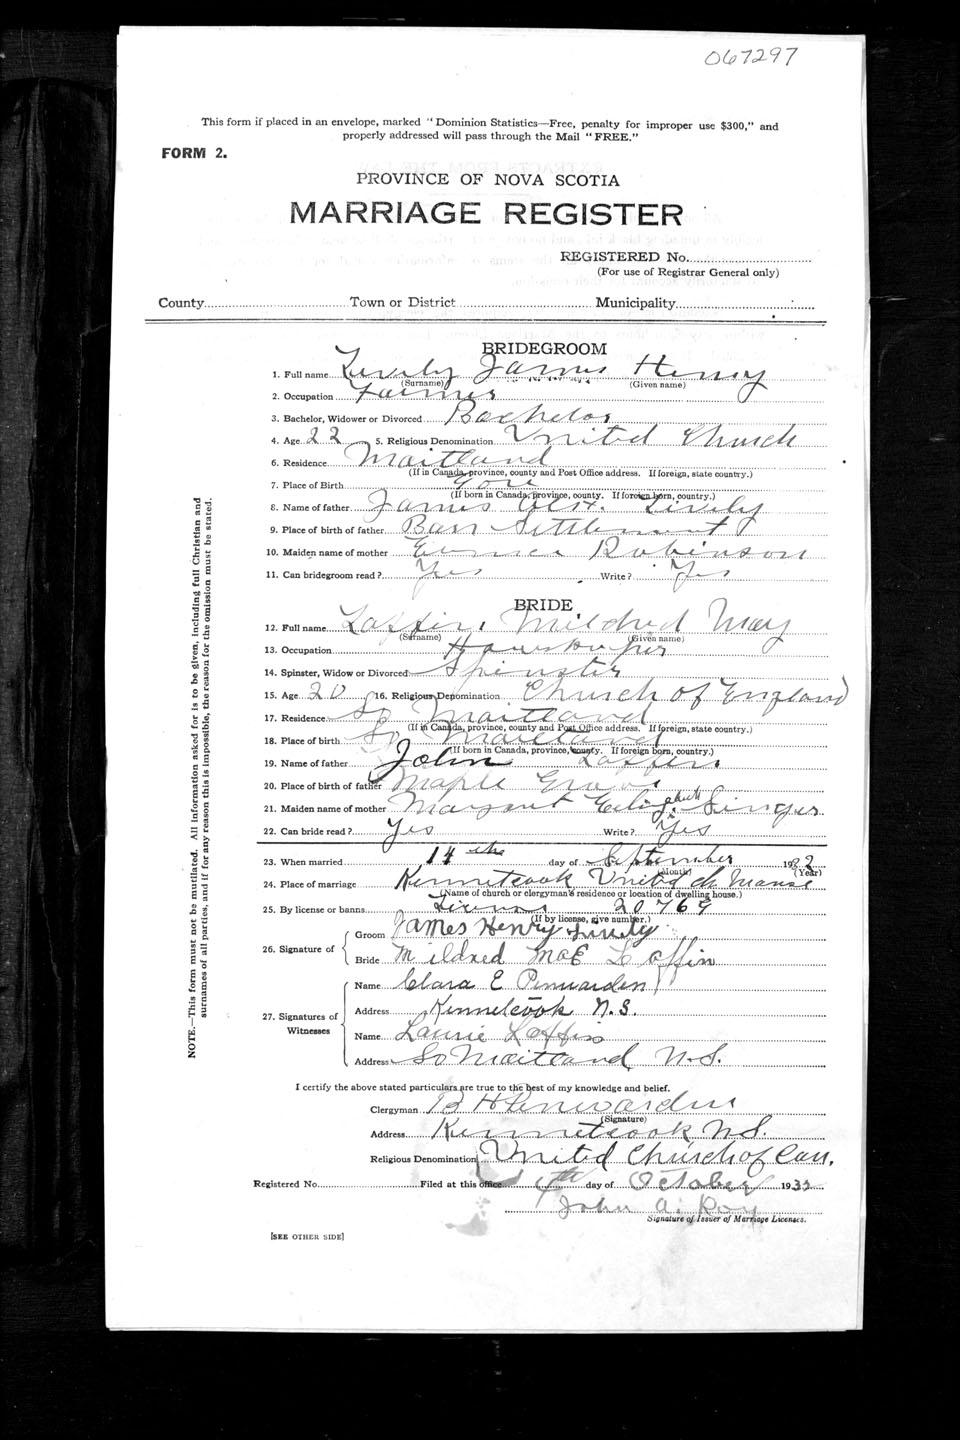 067297
This form if placed in an envelope, marked "Dominion Statistics—Free, penalty for improper use $300," and
properly addressed will pass through the Mail "FREE."
FORM 2.
PROVINCE OF NOVA SCOTIA
MARRIAGE REGISTER
REGISTERED No.
(For use of Registrar General only)
County Town or District Municipality
BRIDEGROOM
1. Full name Lively James Henry
(Surname) (Given name)
2. Occupation Farmer
3. Bachelor, Widower or Divorced Bachelor
4. Age 22 5. Religious Denomination United Church
6. Residence Maitland
(If in Canada, province, county and Post Office address. If foreign, state country.)
7. Place of Birth Gore
(If born in Canada, province, county. If foreign born, country.)
8. Name of father James Lively
9. Place of birth of father Barr Settlement
10. Maiden name of mother Robinson
11. Can bridegroom read? Yes Write? Yes
BRIDE
12. Full name Laffin, Mildred May
(Surname) (Given name)
13. Occupation Housekeeper
14. Spinster, Widow or Divorced Spinster
15. Age 20 16. Religious Denomination Church of England
17. Residence So Maitland
(If in Canada, province, county and Post Office address. If foreign, state country.)
18. Place of birth So Maitland
(If born in Canada, province, county. If foreign born, country.)
19. Name of father John Laffin
20. Place of birth of father Maple Grove
21. Maiden name of mother Margaret Elizabeth Singer
22. Can bride read? Yes Write? Yes
23. When married 14th day of September 1932
(Month) (Year)
24. Place of marriage Kennetcook United ch Manse
(Name of church or clergyman's residence or location of dwelling house.)
25. By license or banns License 20769
(If by license, give number.)
26. Signature of Groom James Henry Lively
Bride Mildred Mae Laffin
27. Signatures of Witnesses
Name Clara E Penwarden
Address Kennetcook N.S.
Name Laurie Laffin
Address So Maitland N.S.
I certify the above stated particulars are true to the best of my knowledge and belief.
Clergyman B H Penwarden
(Signature)
Address Kennetcook N.S.
Religious Denomination United Church of Can.
Registered No. Filed at this office 4th day of October 1932
John A. Roy
Signature of Issuer of Marriage Licenses.
[SEE OTHER SIDE]
NOTE.—This form must not be mutilated. All information asked for is to be given, including full Christian and
surnames of all parties, and if for any reason this is impossible, the reason for the omission must be stated.